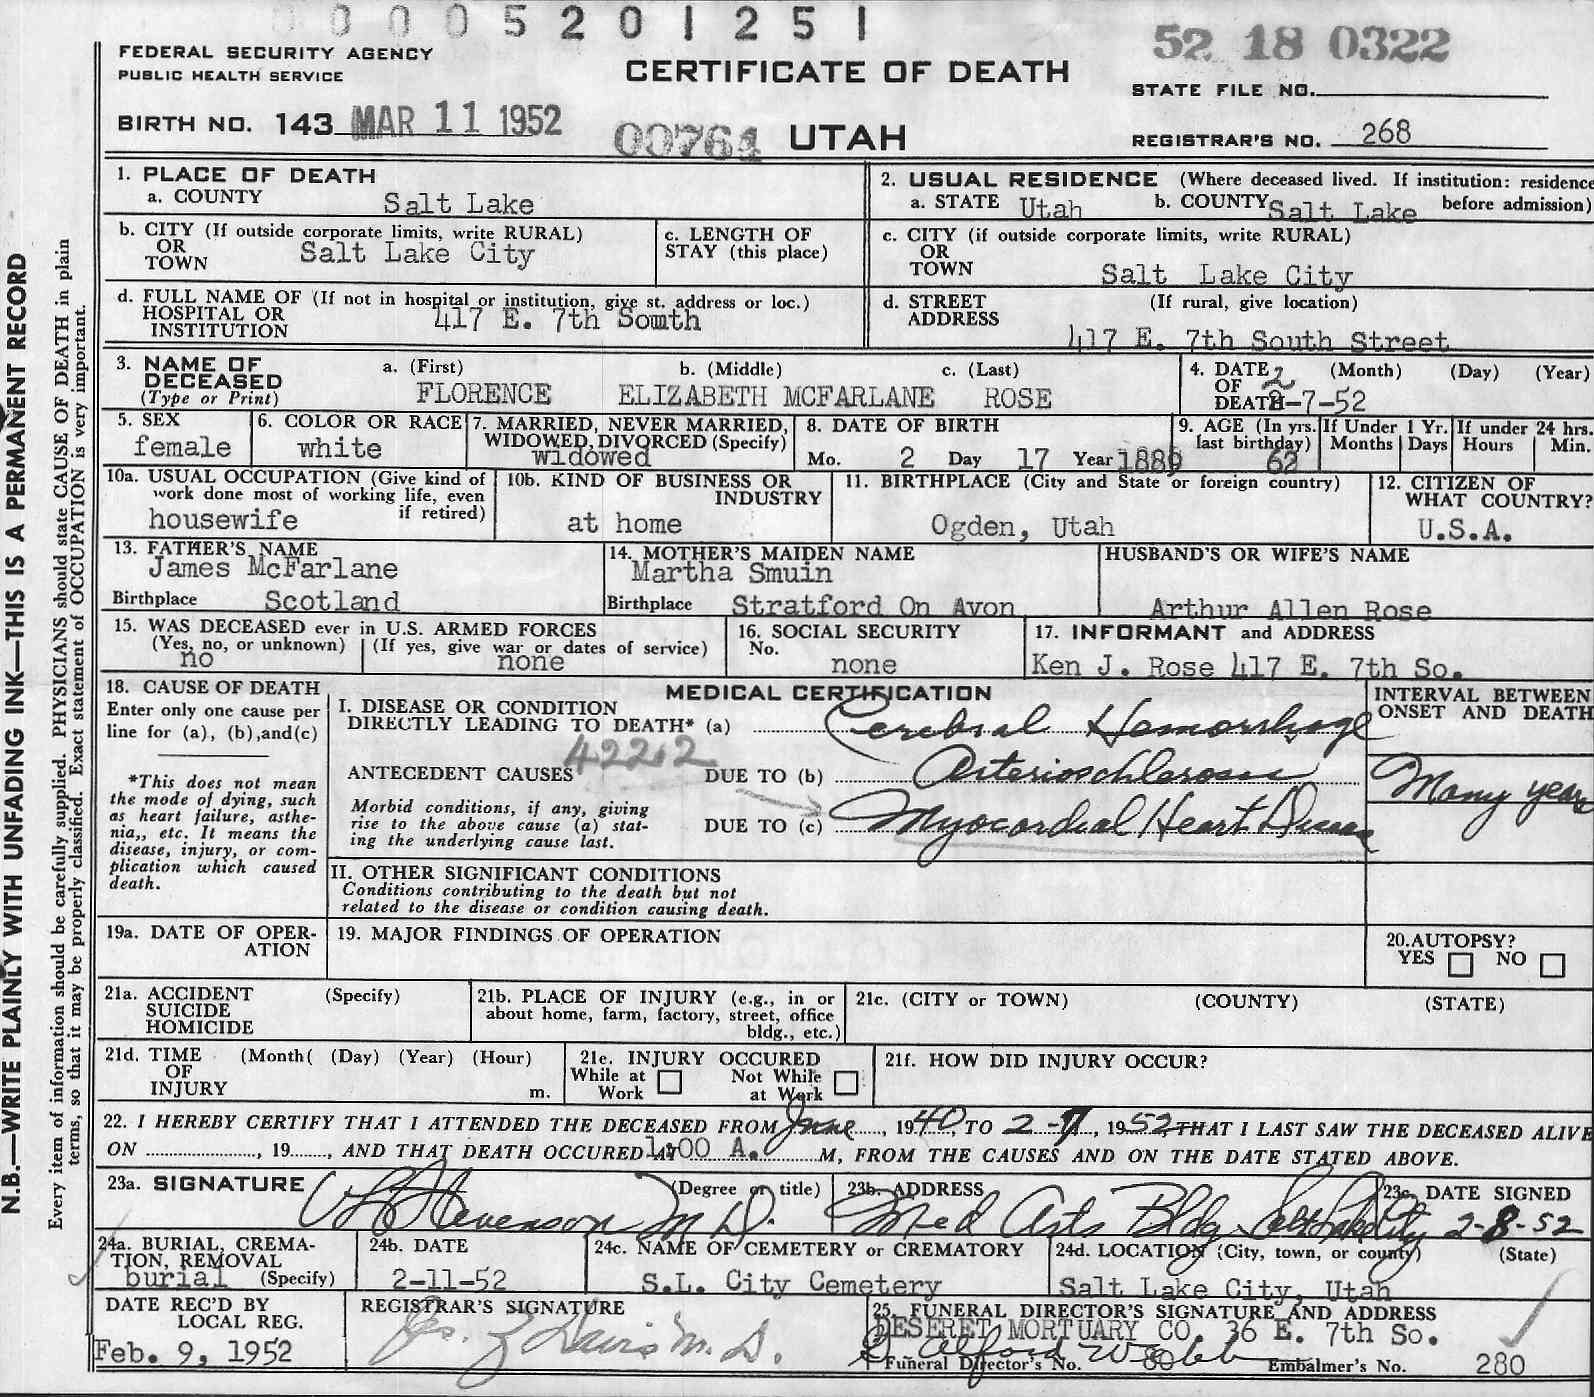 0005201251
52 18 0322
FEDERAL SECURITY AGENCY
PUBLIC HEALTH SERVICE
CERTIFICATE OF DEATH
STATE FILE NO.
BIRTH NO. 143 MAR 11 1952
UTAH
REGISTRAR'S NO. 268
1. PLACE OF DEATH
a. COUNTY Salt Lake
2. USUAL RESIDENCE (Where deceased lived. If institution: residence before admission)
a. STATE Utah b. COUNTY Salt Lake
b. CITY (If outside corporate limits, write RURAL)
OR
TOWN
Salt Lake City
c. LENGTH OF
STAY (this place)
c. CITY (if outside corporate limits, write RURAL)
OR
TOWN
Salt Lake City
d. FULL NAME OF (If not in hospital or institution, give st. address or loc.)
HOSPITAL OR
INSTITUTION
417 E. 7th Somth
d. STREET (If rural, give location)
ADDRESS
417 E. 7th South Street
3. NAME OF
DECEASED
(Type or Print)
a. (First) b. (Middle) c. (Last)
FLORENCE ELIZABETH MCFARLANE ROSE
4. DATE (Month) (Day) (Year)
OF
DEATH 2-7-52
5. SEX
female
6. COLOR OR RACE
white
7. MARRIED, NEVER MARRIED,
WIDOWED, DIVORCED (Specify)
widowed
8. DATE OF BIRTH
Mo. 2 Day 17 Year 1889
9. AGE (In yrs. last birthday) 62
If Under 1 Yr.
Months Days
If under 24 hrs.
Hours Min.
10a. USUAL OCCUPATION (Give kind of
work done most of working life, even
if retired)
housewife
10b. KIND OF BUSINESS OR
INDUSTRY
at home
11. BIRTHPLACE (City and State or foreign country)
Ogden, Utah
12. CITIZEN OF
WHAT COUNTRY?
U.S.A.
13. FATHER'S NAME
James McFarlane
Birthplace Scotland
14. MOTHER'S MAIDEN NAME
Martha Smuin
Birthplace Stratford On Avon
HUSBAND'S OR WIFE'S NAME
Arthur Allen Rose
15. WAS DECEASED ever in U.S. ARMED FORCES
(Yes, no, or unknown) (If yes, give war or dates of service)
no none
16. SOCIAL SECURITY
No.
none
17. INFORMANT and ADDRESS
Ken J. Rose 417 E. 7th So.
18. CAUSE OF DEATH
Enter only one cause per
line for (a), (b), and (c)
*This does not mean
the mode of dying, such
as heart failure, asthe-
nia,, etc. It means the
disease, injury, or com-
plication which caused
death.
MEDICAL CERTIFICATION
I. DISEASE OR CONDITION
DIRECTLY LEADING TO DEATH* (a) Cerebral Hemorrhage
4222
ANTECEDENT CAUSES DUE TO (b) Arterioschlerosis
Morbid conditions, if any, giving
rise to the above cause (a) stat-
ing the underlying cause last.
DUE TO (c) Myocordial Heart Disease
INTERVAL BETWEEN
ONSET AND DEATH
Many years
II. OTHER SIGNIFICANT CONDITIONS
Conditions contributing to the death but not
related to the disease or condition causing death.
19a. DATE OF OPER-
ATION
19. MAJOR FINDINGS OF OPERATION
20. AUTOPSY?
YES NO
21a. ACCIDENT (Specify)
SUICIDE
HOMICIDE
21b. PLACE OF INJURY (e.g., in or
about home, farm, factory, street, office
bldg., etc.)
21c. (CITY or TOWN) (COUNTY) (STATE)
21d. TIME (Month( (Day) (Year) (Hour)
OF
INJURY m.
21e. INJURY OCCURED
While at Work Not While at Work
21f. HOW DID INJURY OCCUR?
22. I HEREBY CERTIFY THAT I ATTENDED THE DECEASED FROM June, 1940, TO 2-7, 1952, THAT I LAST SAW THE DECEASED ALIVE
ON ............, 19......, AND THAT DEATH OCCURED AT 1:00 A. M, FROM THE CAUSES AND ON THE DATE STATED ABOVE.
23a. SIGNATURE (Degree or title)
Stevenson M D.
23b. ADDRESS
Med Arts Bldg Salt Lake City
23c. DATE SIGNED
2-8-52
24a. BURIAL, CREMA-
TION, REMOVAL
burial (Specify)
24b. DATE
2-11-52
24c. NAME OF CEMETERY or CREMATORY
S.L. City Cemetery
24d. LOCATION (City, town, or county) (State)
Salt Lake City, Utah
DATE REC'D BY
LOCAL REG.
Feb. 9, 1952
REGISTRAR'S SIGNATURE
Davis M. D.
25. FUNERAL DIRECTOR'S SIGNATURE AND ADDRESS
DESERET MORTUARY CO. 36 E. 7th So.
Alford Webb
Funeral Director's No. 80 Embalmer's No. 280
N.B.—WRITE PLAINLY WITH UNFADING INK—THIS IS A PERMANENT RECORD
Every item of information should be carefully supplied. PHYSICIANS should state CAUSE OF DEATH in plain
terms, so that it may be properly classified. Exact statement of OCCUPATION is very important.